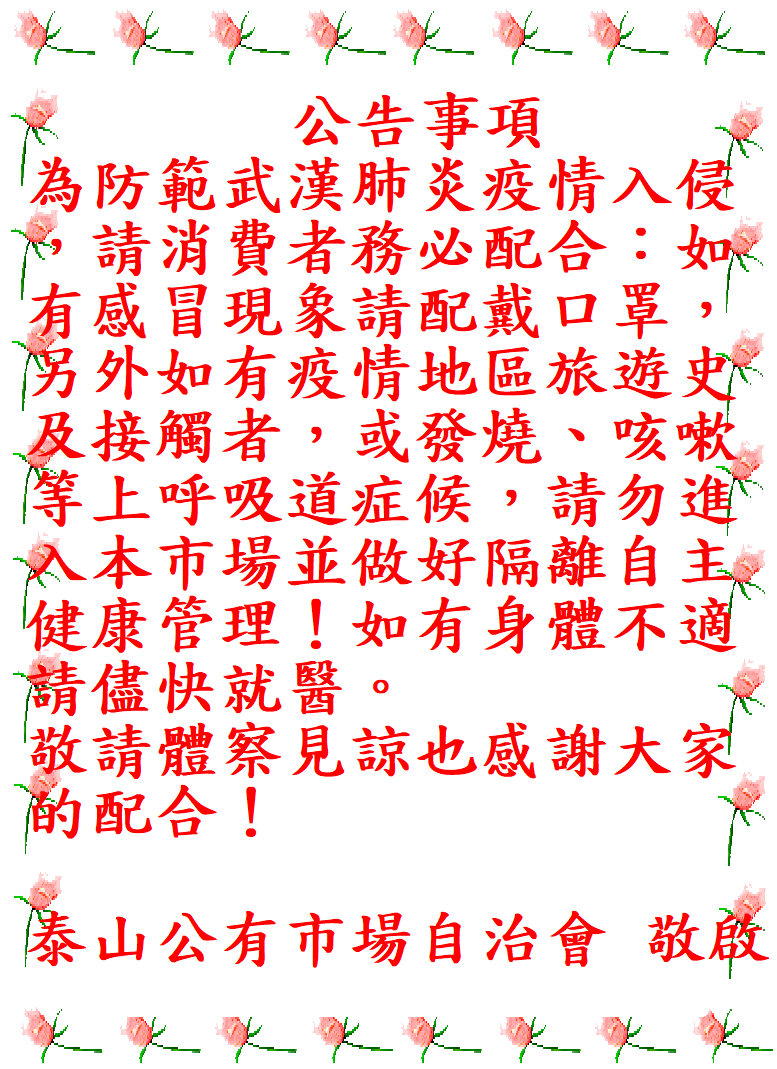 公告事項
為防範武漢肺炎疫情入侵
，請消費者務必配合：如
有感冒現象請配戴口罩，
另外如有疫情地區旅遊史
及接觸者，或發燒、咳嗽
等上呼吸道症候，請勿進
入本市場並做好隔離自主
健康管理！如有身體不適
請儘快就醫。
敬請體察見諒也感謝大家
的配合！
泰山公有市場自治會 敬啟